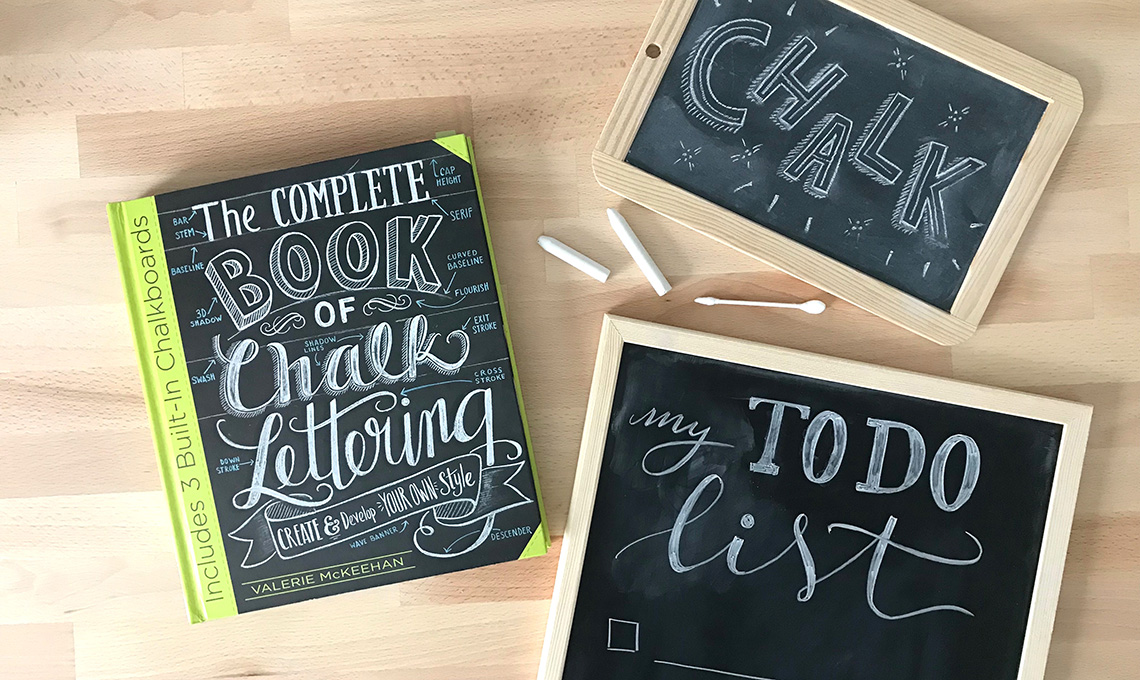 Includes 3 Built-In Chalkboards
The COMPLETE
BOOK
OF
Chalk
Lettering
CREATE & Develop YOUR OWN Style
VALERIE McKEEHAN
BAR
STEM
BASELINE
3D
SHADOW
SWASH
DOWN
STROKE
CAP
HEIGHT
SERIF
CURVED
BASELINE
FLOURISH
EXIT
STROKE
SHADOW
LINES
CROSS
STROKE
WAVE BANNER
DESCENDER
CHALK
my TO DO
list